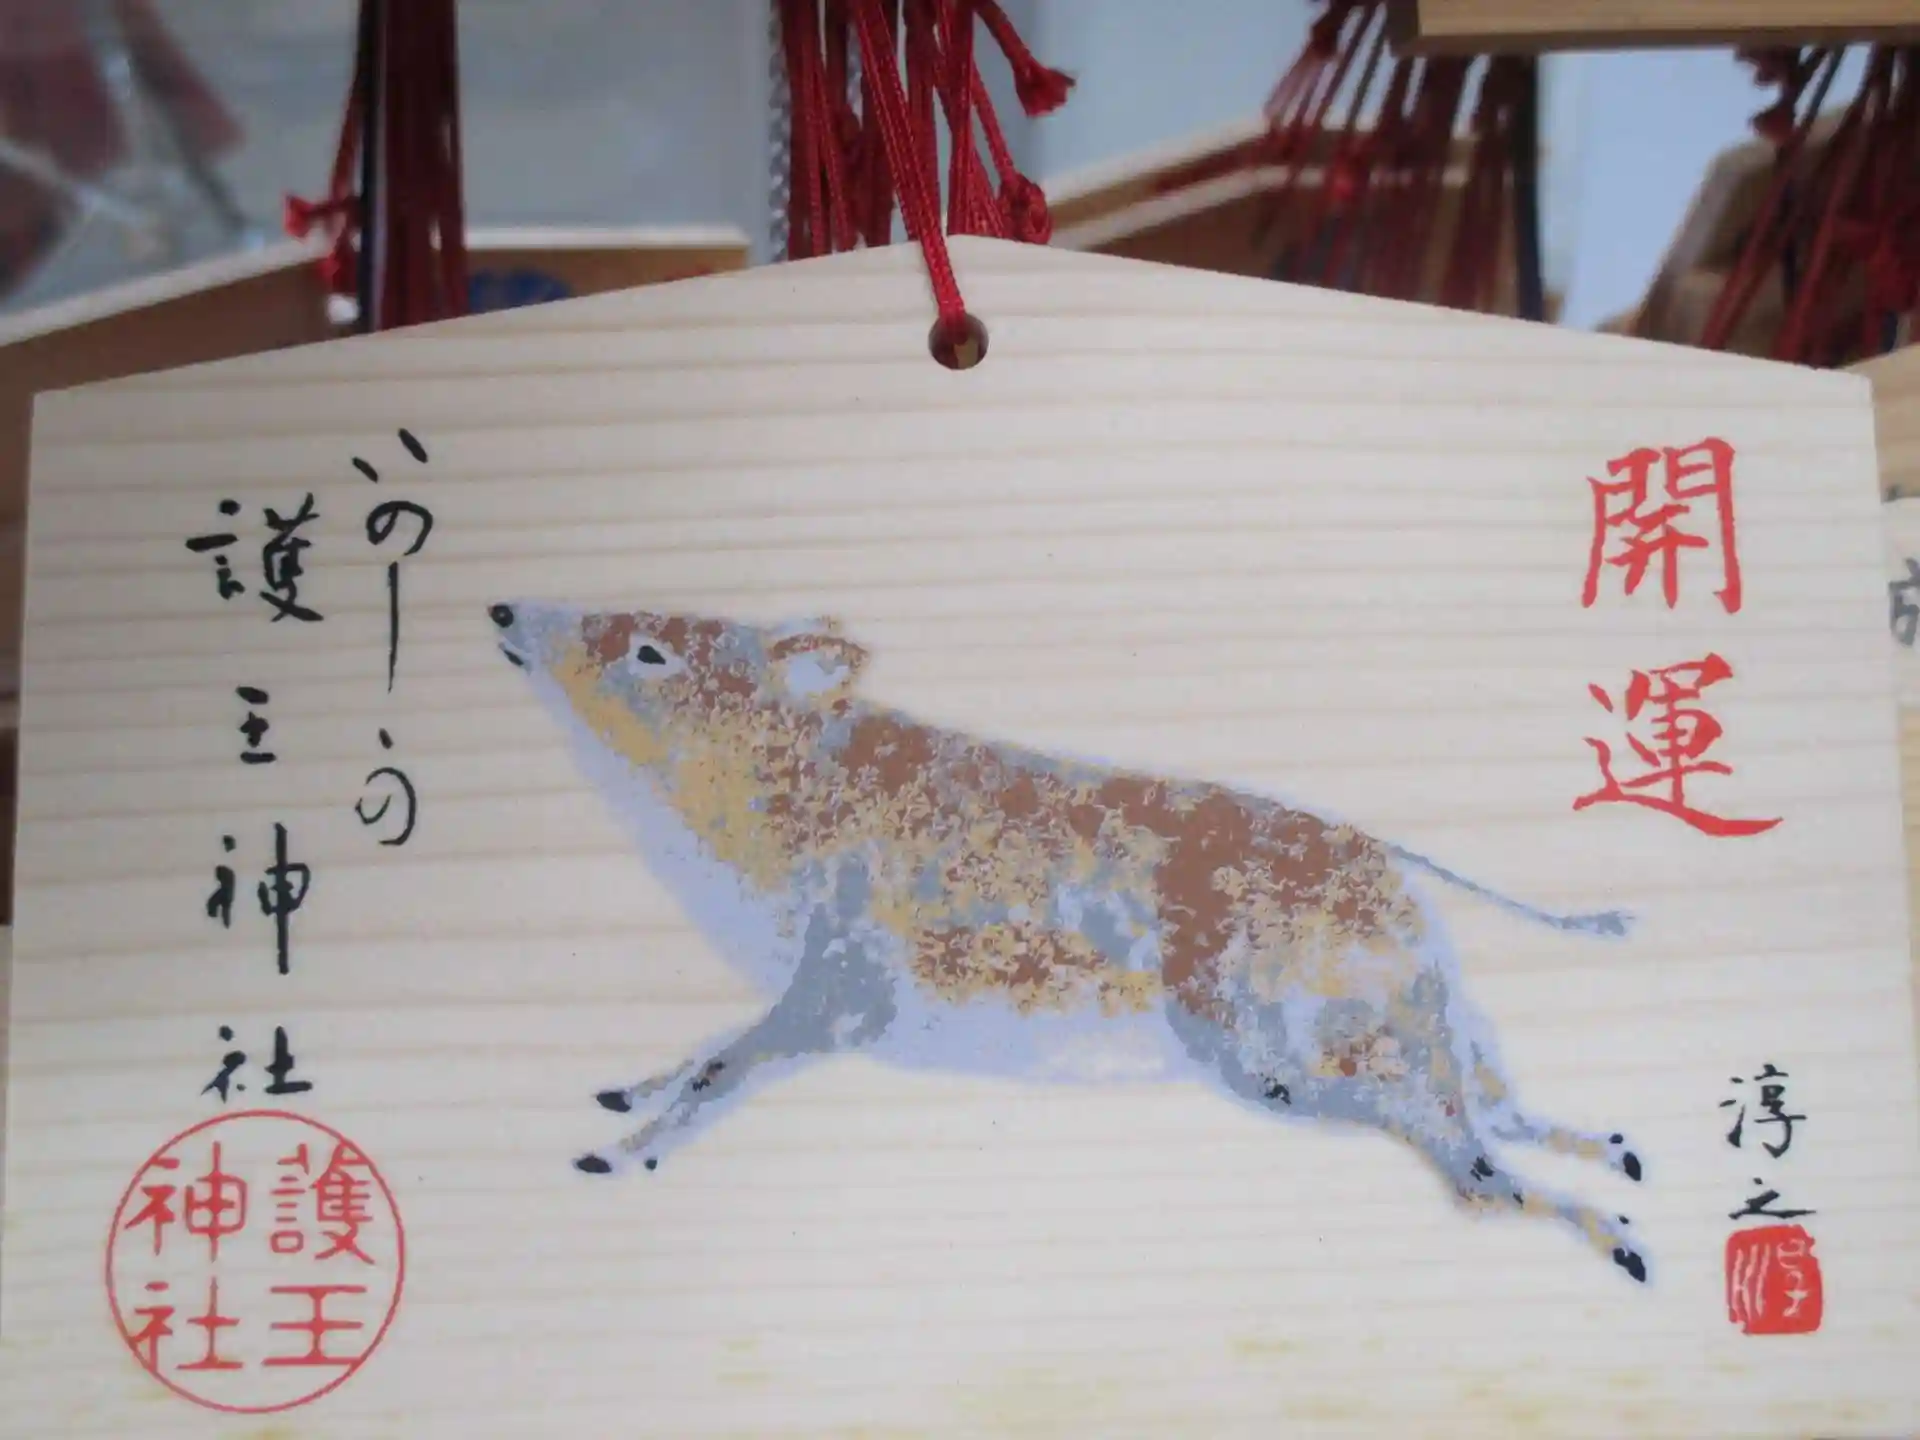 開運
いのししの
護王神社
護王
神社
淳之
淳